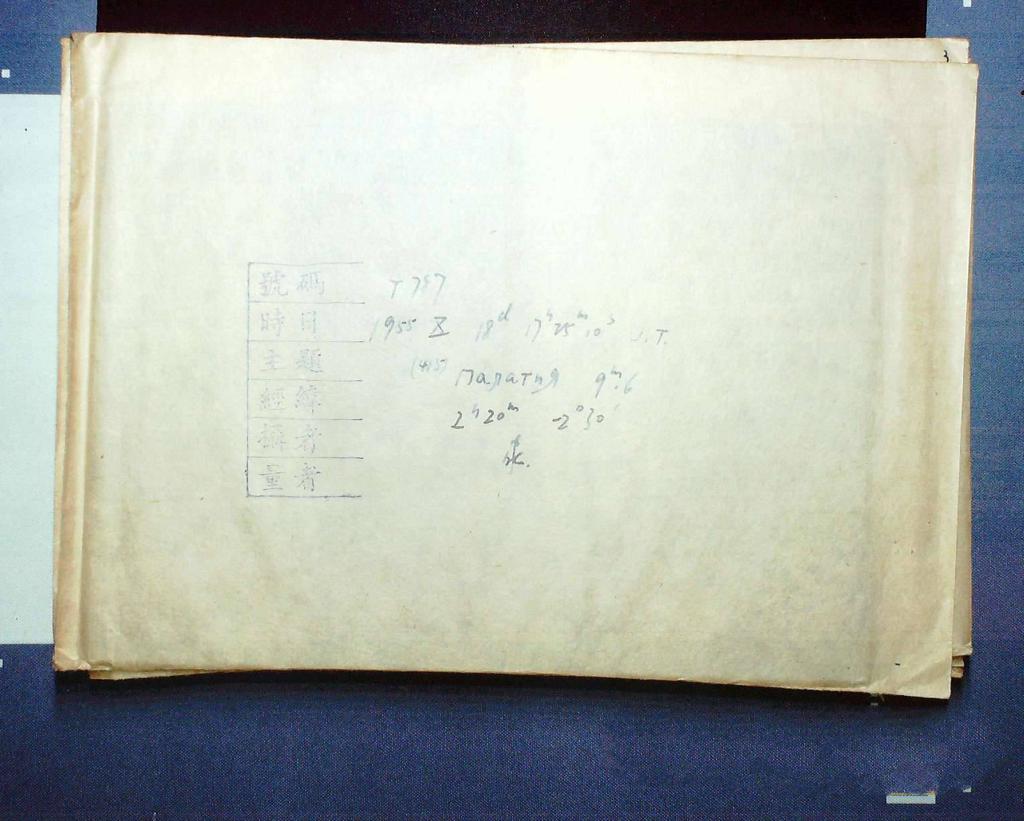 3
號碼 T 787
時日 1955 X 18d 17h25m10s U.T.
主題 (415) Палатия 9m.6
經緯 2h20m -2°30'
攝者
量者